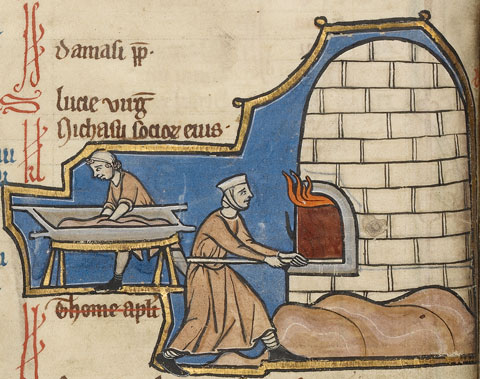 damasi p̅p̅.
lucie uirg̅
Nichasii socioꝝ eius.
Thome apl̅i